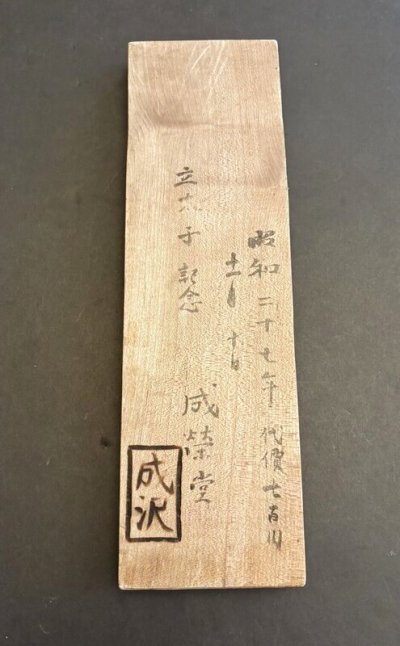 昭和二十七年 代價七百円
十一月十日
立太子記念
成榮堂
成沢